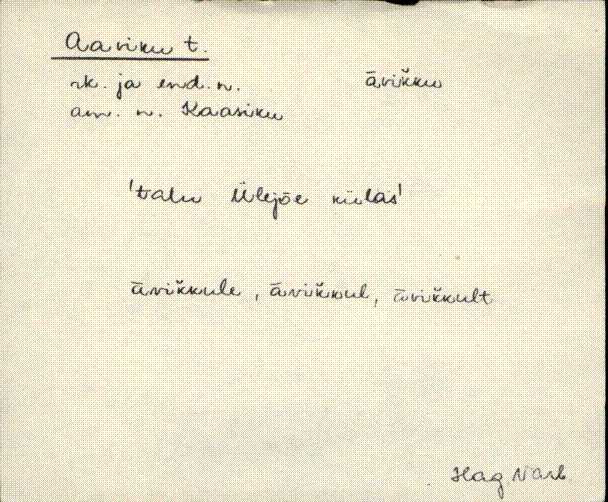 Aaviku t.
rk. ja end. n. āvik̆ku
am. n. Kaasiku
'talu Ülejõe külas'
āvik̆kule, āvik̆kul, āvik̆kult
Hag Varb